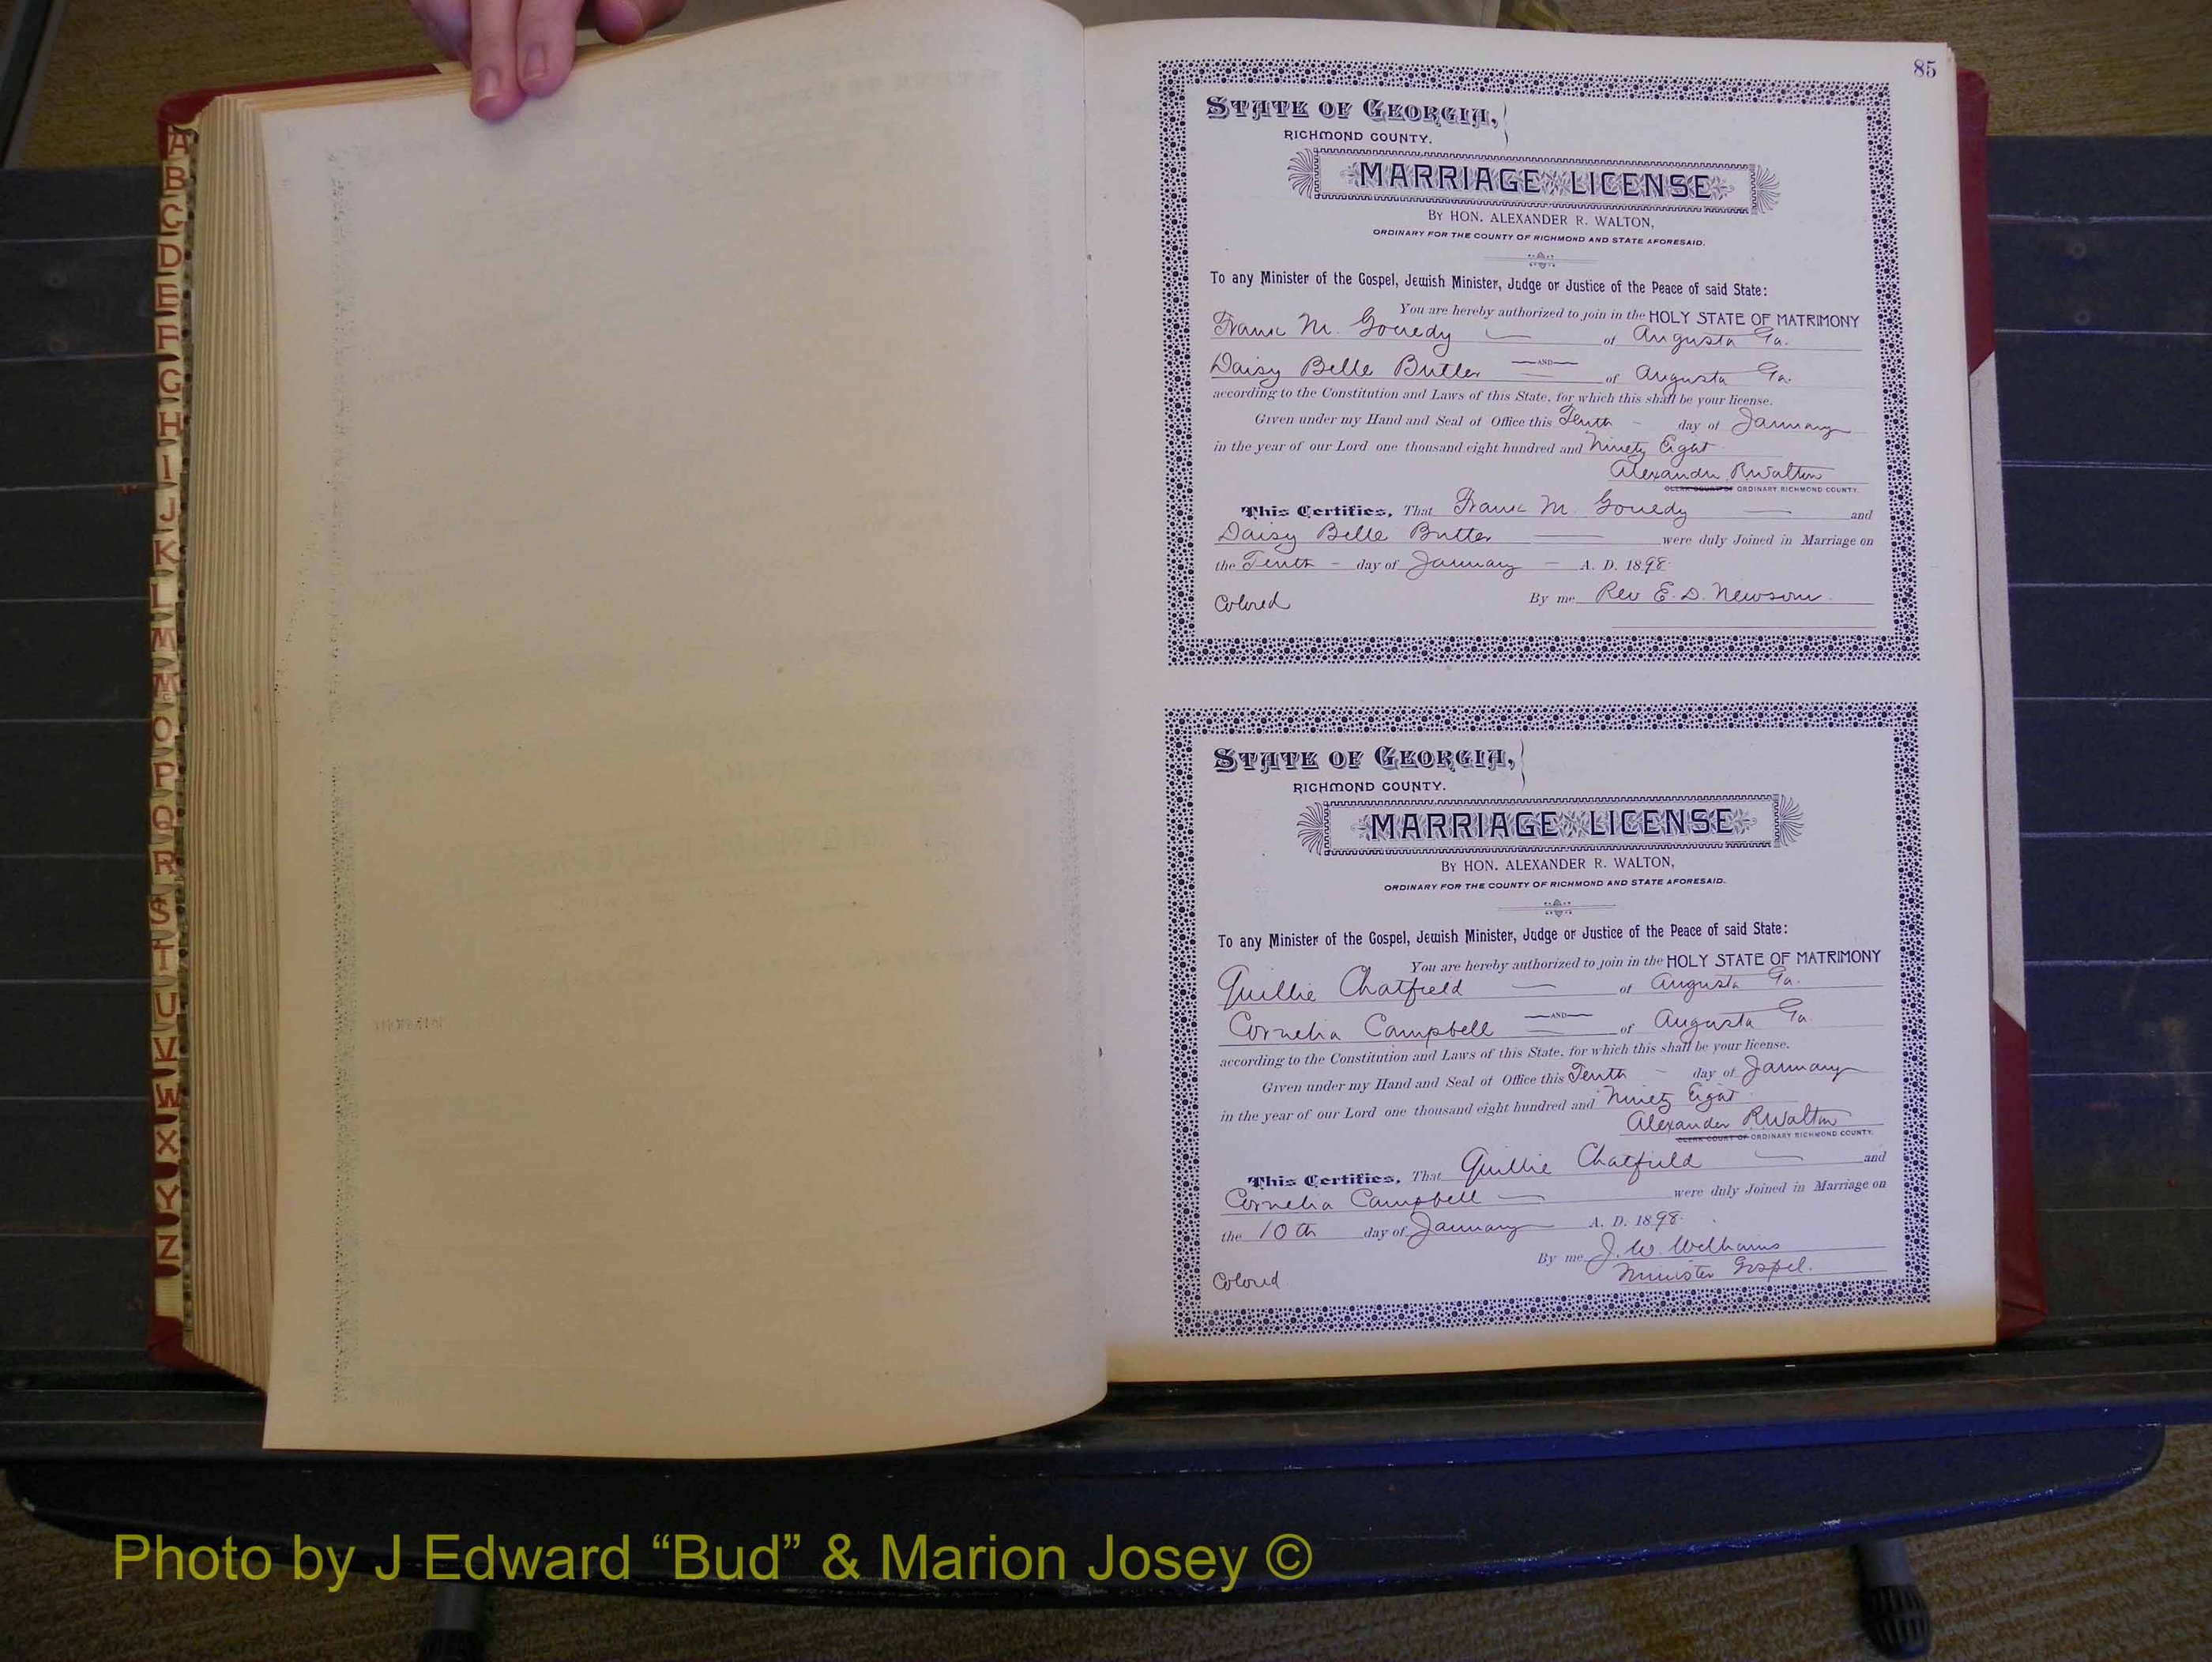 A
B
C
D
E
F
G
H
I
J
K
L
M
Mc
O
P
Q
R
S
T
U
V
W
X
Y
Z
85
STATE OF GEORGIA,
RICHMOND COUNTY.
MARRIAGE LICENSE
BY HON. ALEXANDER R. WALTON,
ORDINARY FOR THE COUNTY OF RICHMOND AND STATE AFORESAID.
To any Minister of the Gospel, Jewish Minister, Judge or Justice of the Peace of said State:
You are hereby authorized to join in the HOLY STATE OF MATRIMONY
Frank M. Gouedy of Augusta Ga.
AND
Daisy Belle Butler of Augusta Ga.
according to the Constitution and Laws of this State, for which this shall be your license.
Given under my Hand and Seal of Office this Tenth day of January
in the year of our Lord one thousand eight hundred and Ninety Eight
Alexander R Walton
CLERK COURT OF ORDINARY RICHMOND COUNTY.
This Certifies, That Frank M. Gouedy and
Daisy Belle Butler were duly Joined in Marriage on
the Tenth day of January A. D. 1898
Colored By me Rev E. D. Newsom.
STATE OF GEORGIA,
RICHMOND COUNTY.
MARRIAGE LICENSE
BY HON. ALEXANDER R. WALTON,
ORDINARY FOR THE COUNTY OF RICHMOND AND STATE AFORESAID.
To any Minister of the Gospel, Jewish Minister, Judge or Justice of the Peace of said State:
You are hereby authorized to join in the HOLY STATE OF MATRIMONY
Quillie Chatfield of Augusta Ga.
AND
Cornelia Campbell of Augusta Ga
according to the Constitution and Laws of this State, for which this shall be your license.
Given under my Hand and Seal of Office this Tenth day of January
in the year of our Lord one thousand eight hundred and Ninety Eight
Alexander R Walton
CLERK COURT OF ORDINARY RICHMOND COUNTY.
This Certifies, That Quillie Chatfield and
Cornelia Campbell were duly Joined in Marriage on
the 10th day of January A. D. 1898
By me J. W. Williams
Colored Minister Gospel.
Photo by J Edward “Bud” & Marion Josey ©